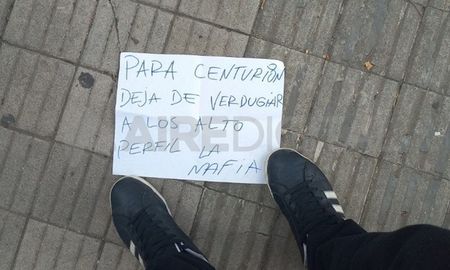 PARA CENTURIÓN
DEJA DE VERDUGIAR
A LOS ALTO
PERFIL LA
MAFIA
AIREDIGITAL